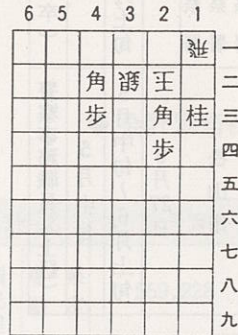 6 5 4 3 2 1
飛 一
角 銀 王 二
歩 角 桂 三
歩 四
五
六
七
八
九